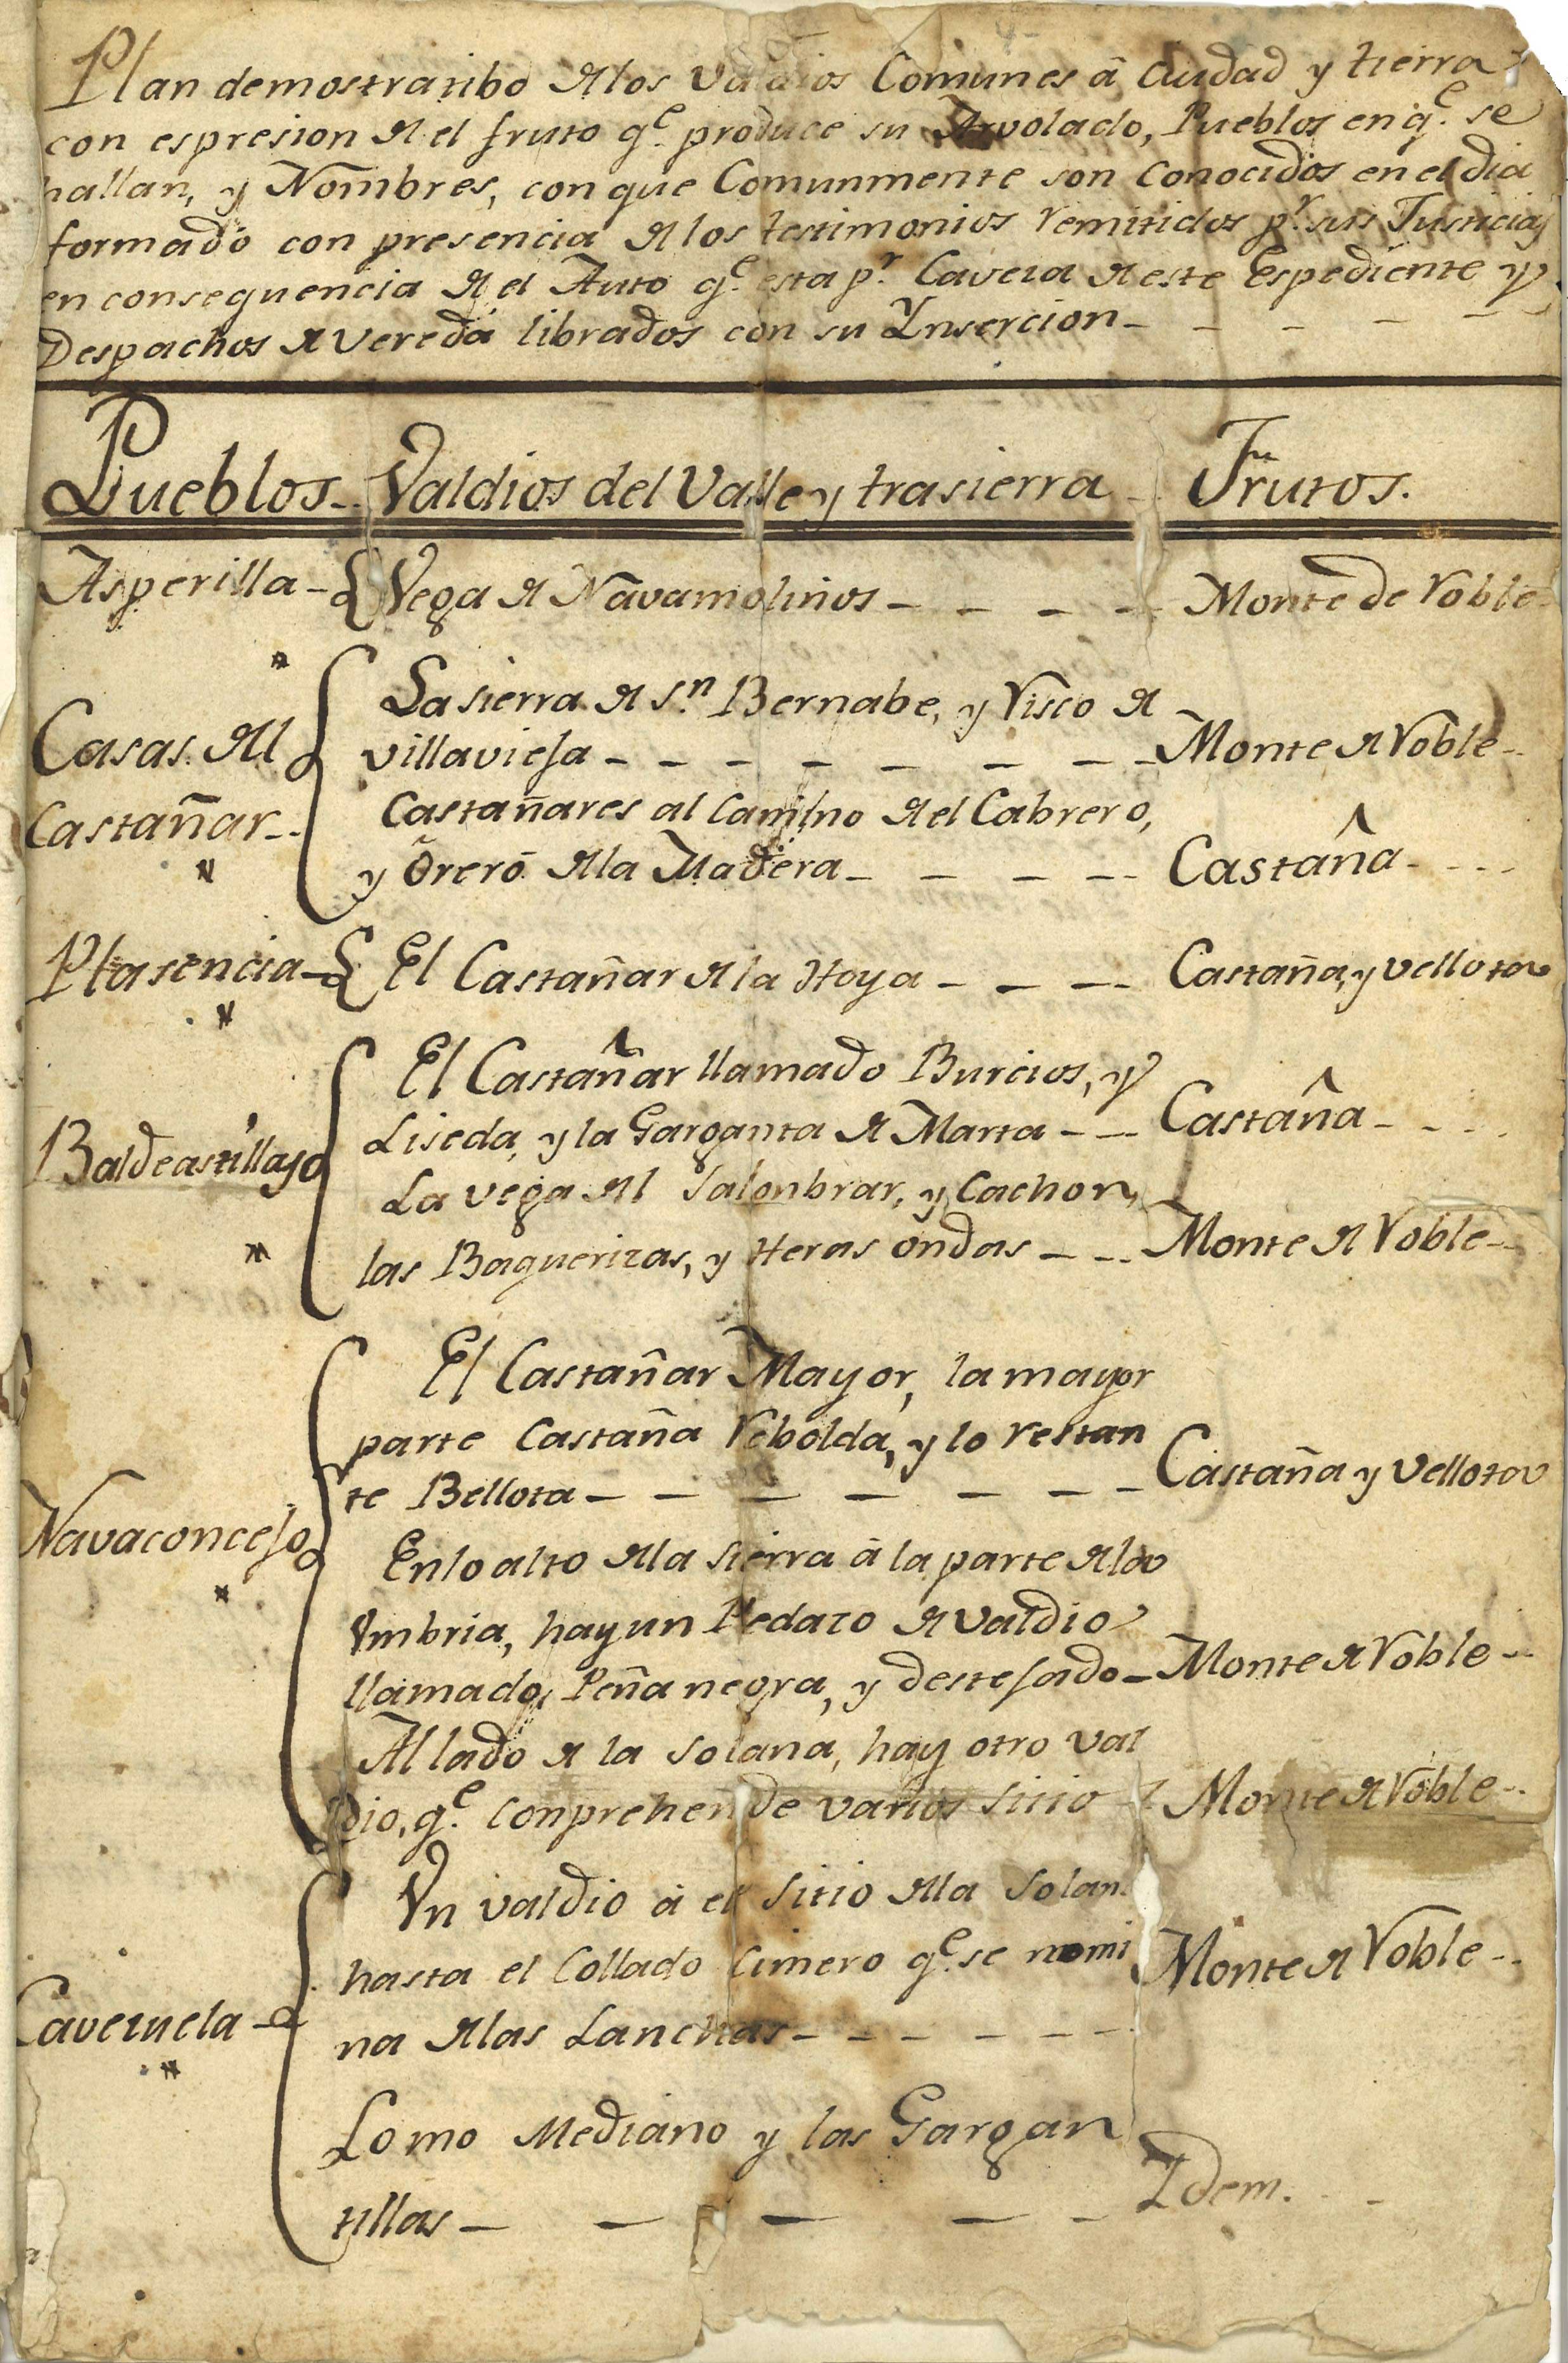 Plan demostratibo de los Valdios Comunes â Ciudad y tierra
con espresion de el fruto q.e produce su Arvolado, Pueblos en q.e se
hallan, y Nombres, con que Comunmente son Conocidos en el dia
formado con presencia de los testimonios remitidos p.r sus Justicias
en consequencia de el Auto q.e esta p.r Caveza de este Espediente y
Despachos de vereda librados con su Ynsercion
Pueblos Valdios del Valle y trasierra Frutos.
Asperilla Vega de Navamolinos Monte de Roble
La sierra de S.n Bernabe, y Risco de
Casas del villavieja Monte de Roble
Castañar Castañares al Camino del Cabrero,
y Orero de la Madera Castaña
Plasencia El Castañar de la Hoya Castaña, y vellota
El Castañar llamado Burcios, y
Liseda, y la Garganta de Marta Castaña
Baldeastillajo
La vega del Salonbrar, y Cachon,
las Baquerizas, y Heras ondas Monte de Roble
El Castañar Mayor, la mayor
parte Castaña Rebolda, y lo restan
te Bellota Castaña y vellota
Navaconcejo
En lo alto de la Sierra â la parte de la
Vmbria, hay un Pedazo de valdio
llamado, Peña negra, y destejado Monte de Roble
Al lado de la Solana, hay otro val
dio, q.e conprehende varios sitio Monte de Roble
Vn valdio â el sitio de la Solan
hasta el Collado Cimero q.e se nomi Monte de Roble
Cavezuela na de las Lanchas
Lomo Mediano y las Gargan
tillas Idem.